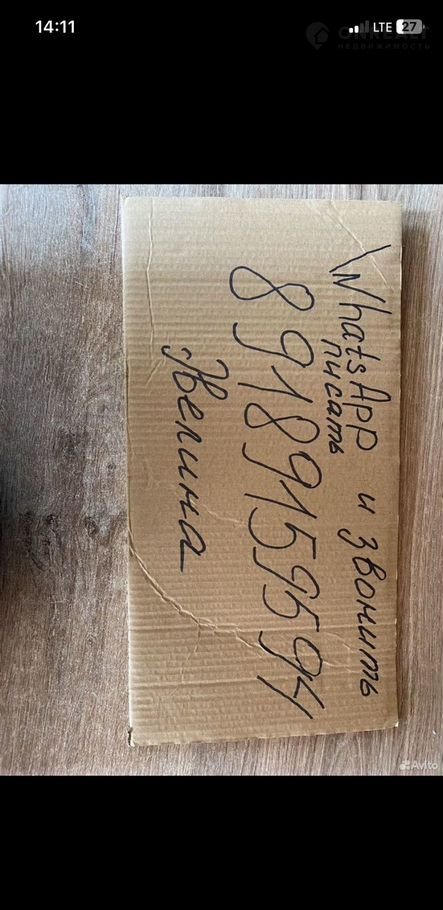 14:11 LTE 27
ONREALT
НЕДВИЖИМОСТЬ
WhatsApp и звонить
писать
89189159594
Эвелина
Avito